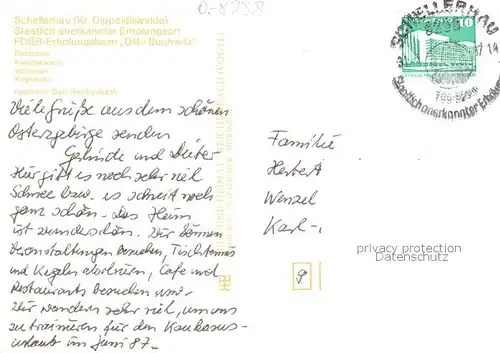 0-8238
Schellerhau (Kr. Dippoldiswalde)
Staatlich anerkannter Erholungsort
FDGB-Erholungsheim „Otto Buchwitz"
SCHELLERHAU
8239
10
Staatlich anerkannter Erholungsort
Viele Grüße aus dem schönen
Osterzgebirge senden
und Dieter
Hier gibt es noch sehr viel
Schnee bzw. es schneit noch
ganz schön. Das Heim
ist wunderschön. Wir können
Veranstaltungen besuchen, Tischtennis
und Kegeln, Cafe und
Restaurants besuchen usw.
Wir wandern sehr viel, um uns
zu trainieren für den Kaukasus-
urlaub im Juni 87.
Familie
Herbert
Wenzel
Karl-
privacy protection
Datenschutz